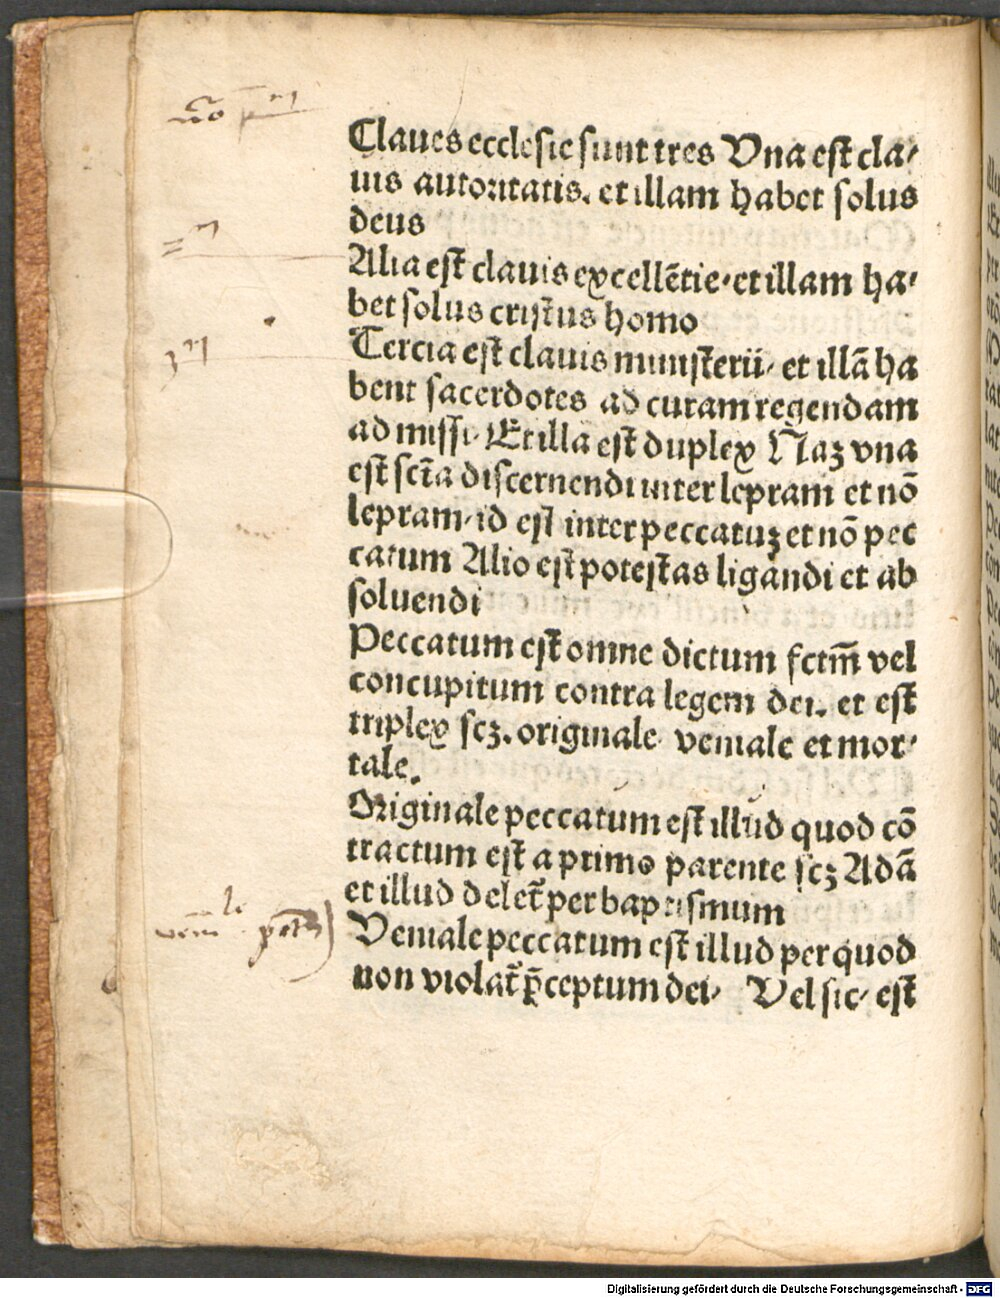 Claues ecclesie sunt tres Vna est cla⸗
uis autoritatis. et illam habet solus
deus
Alia est clauis excellētie⸗et illam ha⸗
bet solus cristus homo
Tercia est clauis ministerii⸗ et illā ha
bent sacerdotes ad curam regendam
ad missi⸗ Et illa est duplex Naꝫ vna
est scīa discernendi inter lepram et nō
lepram⸗id est inter peccatuꝫ et nō pec
catum Alio est potestas ligandi et ab
soluendi
Peccatum est omne dictum fctm̄ vel
concupitum contra legem dei. et est
triplex scꝫ. originale veniale et mor⸗
tale.
Originale peccatum est illud quod cō
tractum est a primo parente scꝫ Adā
et illud delet̄ per baptismum
Veniale peccatum est illud per quod
non violat̄ p̄ceptum dei⸗ Vel sic⸗ est
Digitalisierung gefördert durch die Deutsche Forschungsgemeinschaft - DFG